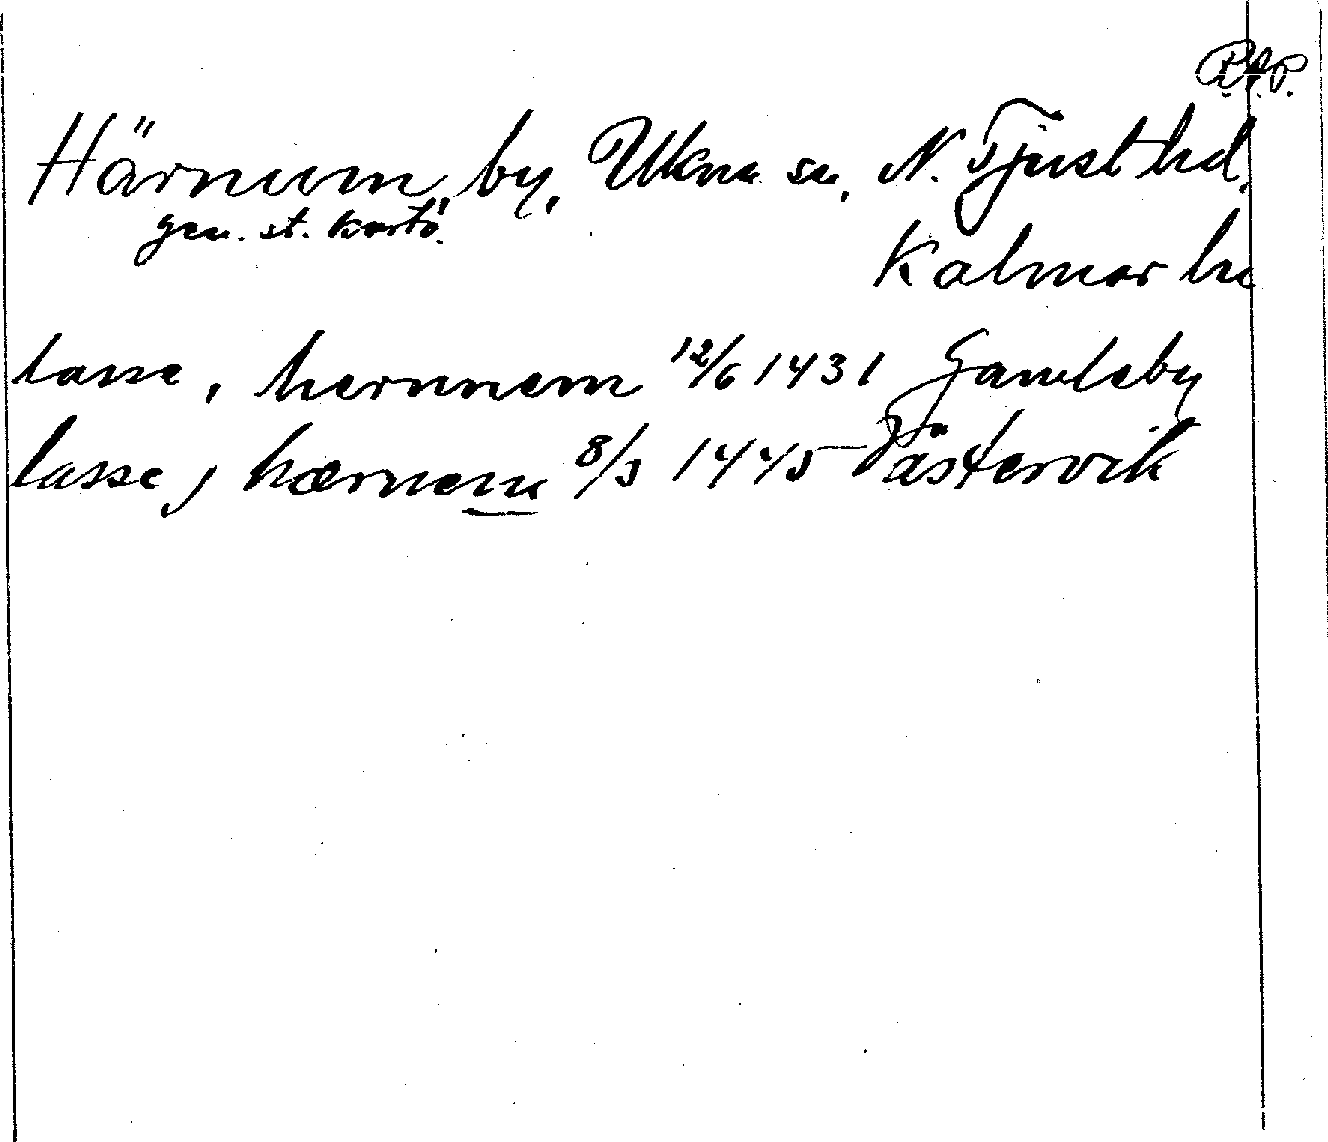 R.A.P.
Härnum by, Ukna sn, N. Tjust hd,
gen. st. kartö.
Kalmar ln
lasse, hernnem 12/6 1431 Gamleby
lasse j hærnem 8/3 1445 Västervik